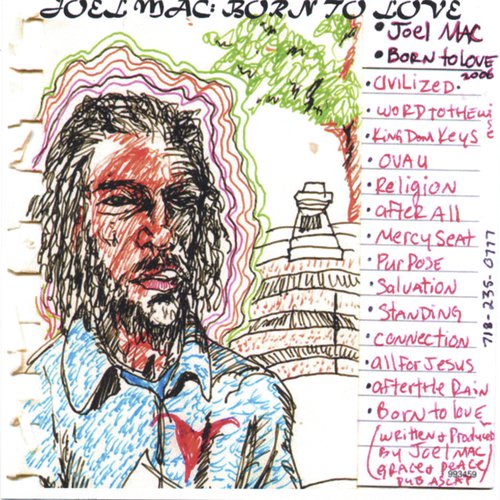 JOEL MAC: BORN TO LOVE
• Joel MAC
• BORN to LOVE
2006
• CIVILIZED.
• WORD TO THE WISE
• King Dom Keys
• OVAU
• Religion
• after All
• Mercy Seat
• PURPOSE
• Salvation
• STANDING
• connection
• all for Jesus
• after the Rain
• Born to love
(written & Produced
By Joel MAC
GRACE & PEACE
PUB ASCAP)
993459
718-235-0777